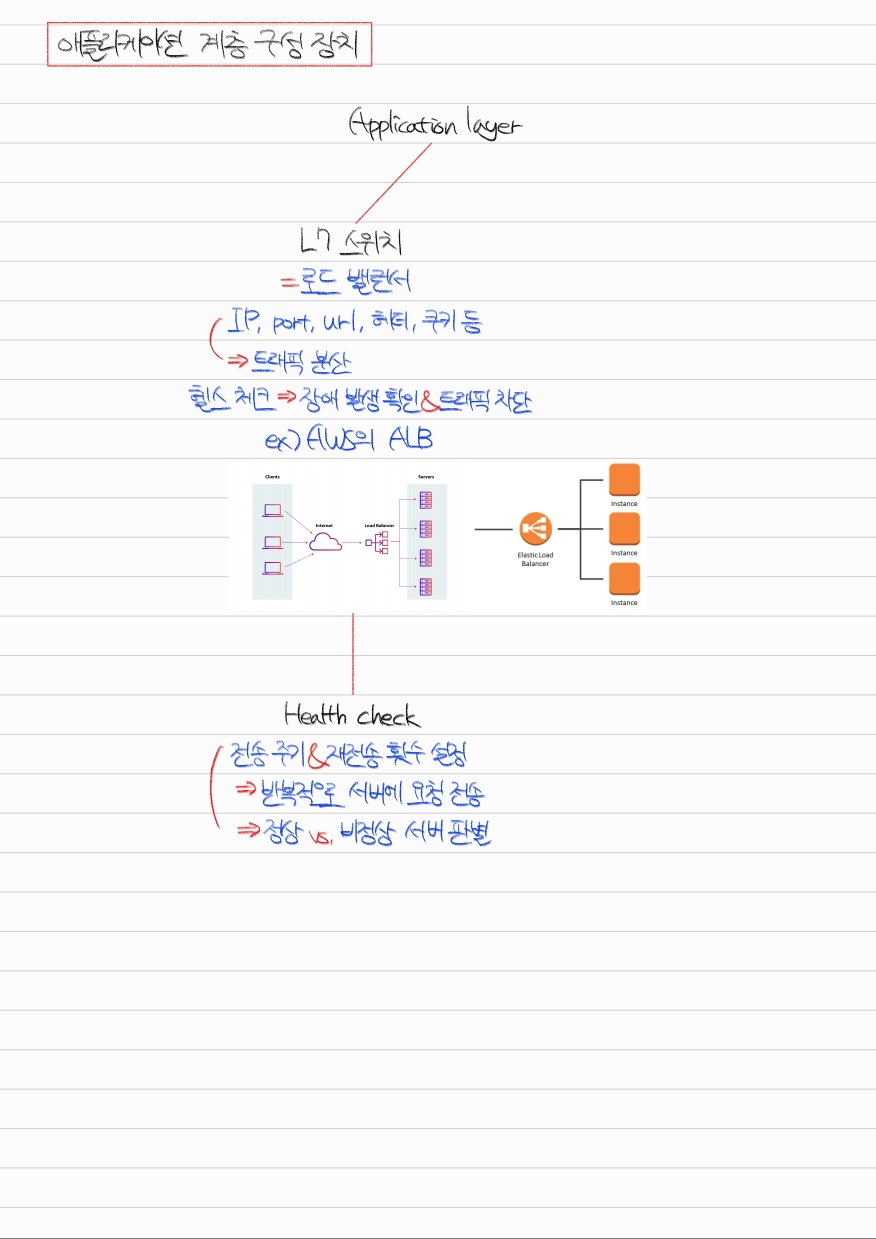 애플리케이션 계층 구성 장치
Application layer
L7 스위치
= 로드 밸런서
IP, port, url, 헤더, 쿠키 등
⇒ 트래픽 분산
헬스 체크 ⇒ 장애 발생 확인 & 트래픽 차단
ex) AWS의 ALB
Clients
Internet
Load Balancer
Servers
Elastic Load
Balancer
Instance
Instance
Instance
Health check
전송 주기 & 재전송 횟수 설정
⇒ 반복적으로 서버에 요청 전송
⇒ 정상 vs. 비정상 서버 판별